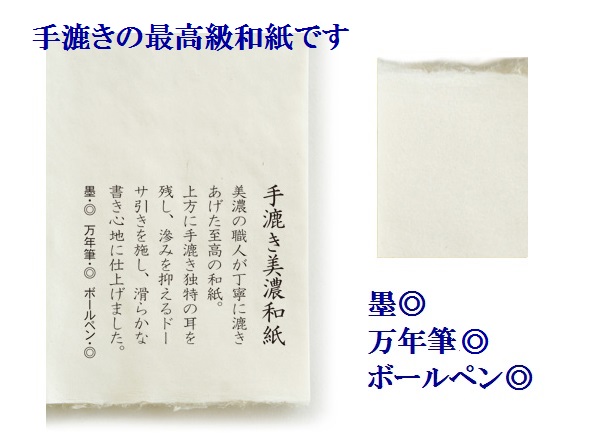 手漉きの最高級和紙です
手漉き美濃和紙
美濃の職人が丁寧に漉き
あげた至高の和紙。
上方に手漉き独特の耳を
残し、滲みを抑えるドー
サ引きを施し、滑らかな
書き心地に仕上げました。
墨・◎ 万年筆・◎ ボールペン・◎
墨◎
万年筆◎
ボールペン◎